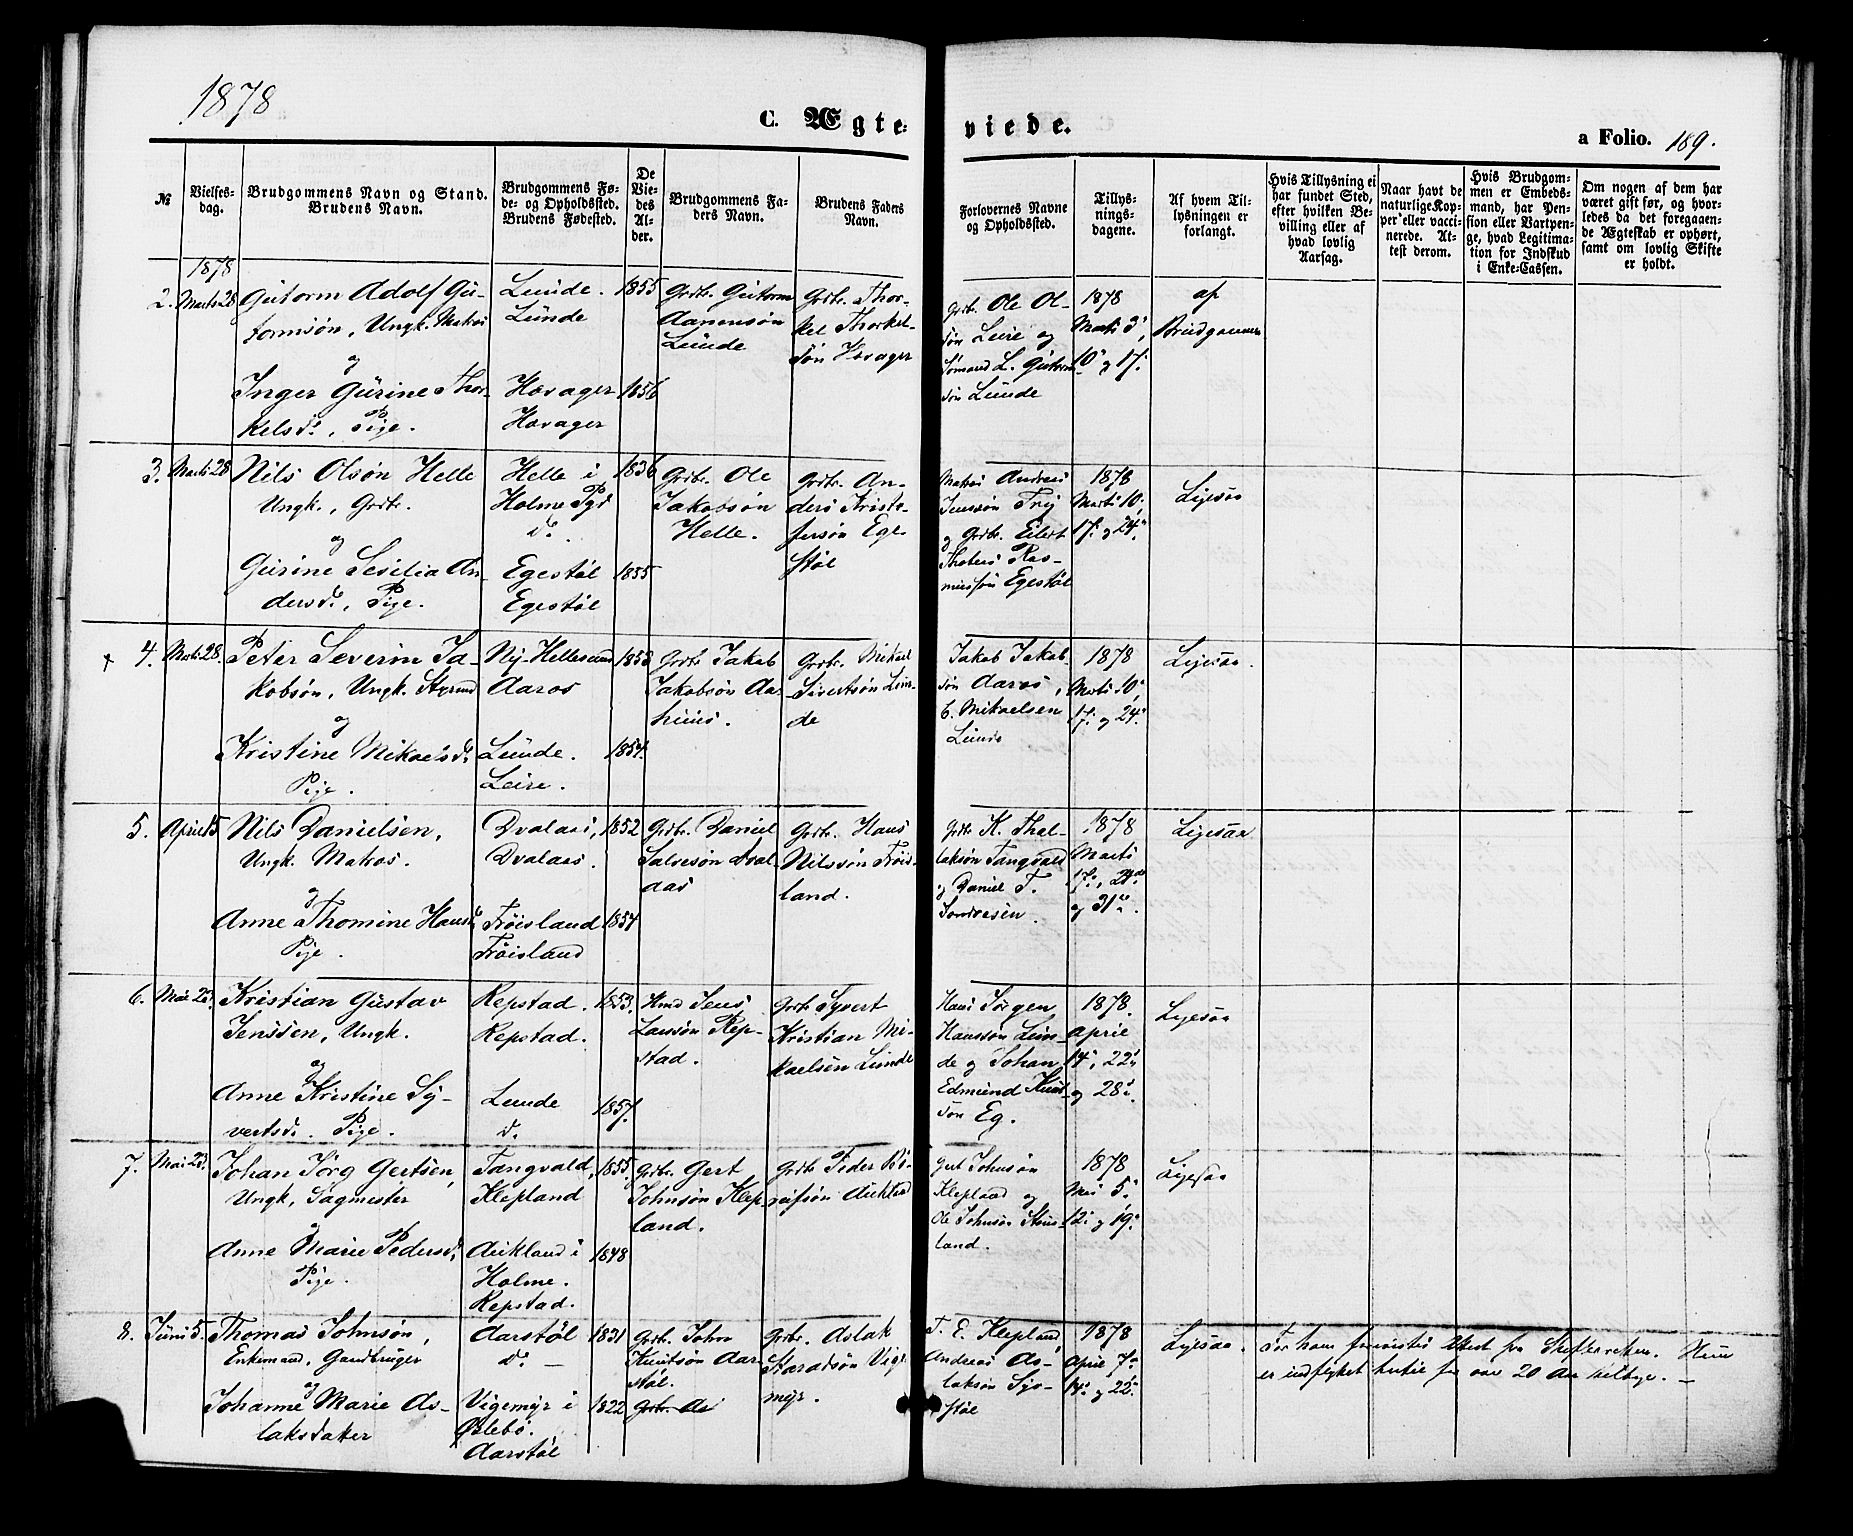 1878
C. Ægte-
viede.
a Folio. 189.
№
Vielses-
dag.
Brudgommens Navn og Stand.
Brudens Navn.
Brudgommens Fø-
de- og Opholdssted.
Brudens Fødested.
De
Vie-
des
Al-
der.
Brudgommens Fa-
ders Navn.
Brudens Faders
Navn.
Forlovernes Navne
og Opholdssted.
Tillys-
nings-
dagene.
Af hvem Til-
lysningen er
forlangt.
Hvis Tillysning ei
har fundet Sted,
efter hvilken Be-
villing eller af
hvad lovlig
Aarsag.
Naar havt de
naturlige Kop-
per eller vacci-
nerede. At-
test derom.
Hvis Brudgom-
men er Embeds-
mand, har Pen-
sion eller Vartpen-
ge, hvad Legitima-
tion for Indskud
i Enke-Cassen.
Om nogen af dem har
været gift før, og hvor-
ledes da det foregaaen-
de Ægteskab er ophørt,
samt om lovlig Skifte
er holdt.
1878
2. Marts 28
Gutorm Adolf Gu-
tormsøn, Ungk. Matros
og
Inger Gurine Thor-
kelsd., Pige.
Lunde.
Lunde
Høvager
Høvager
1855
1856
Grdbr. Gutorm
Aanensøn
Lunde
Grdbr. Thor-
kel Thorkel-
søn Høvager
Grdbr. Ole Ol-
søn Leire og
Sømand L. Gutorm-
søn Lunde
1878
Marts 3,
10 og 17.
af
Brudgommen
3. Marts 28
Nils Olsøn Helle
Ungk., Grdbr.
og
Gurine Sesilia An-
dersd., Pige.
Helle i
Holme Pgd
d.
Egestøl
Egestøl
1836
1855
Grdbr. Ole
Jakobsøn
Helle.
Grdbr. An-
ders Kristo-
fersøn Ege-
støl
Matros Andreas
Jenssøn Try
og Grdbr. Eilert
Thobias Ras-
mussøn Egestøl
1878
Marts 10,
17. og 24.
Ligesaa
4. Marts 28.
Peter Severin Ja-
kobsøn, Ungk. Styrmd
og
Kristine Mikaelsd.
Pige.
Ny-Hellesund
Aaros
Lunde.
Leire.
1853
1854.
Grdbr. Jakob
Jakobsøn Aar-
huus.
Grdbr. Mikael
Sivertsøn Lun-
de
Jakob Jakob-
søn Aaros,
C. Mikaelsen
Lunde
1878
Marts 10
17. og 24.
Ligesaa.
5. April 5
Nils Danielsen,
Ungk. Matros.
og
Anne Thomine Hansd.
Pige.
Dvalaas,
Dvalaas.
Frøisland
Frøisland
1852
1854
Grdbr. Daniel
Salvesøn Dval-
aas
Grdbr. Hans
Nilssøn Frøis-
land.
Grdbr K. Thal-
laksøn Tangvald
og Daniel T.
1878
Marts
17., 24de
og 31te.
Ligesaa.
6. Mai 23.
Kristian Gustav
Jenssen, Ungk.
og
Anne Kristine Sy-
vertsd. Pige.
Repstad.
Repstad.
Lunde
d.
1853.
1857.
Hmd Jens
Larssøn Rep-
stad.
Grdbr Syvert
Kristian Mi-
kaelsen Lunde
Hans Jørgen
Hanssøn Lun-
de og Johan
Edmund Knud-
søn Eg.
1878.
April
14., 22.
og 28.
Ligesaa
7. Mai 23.
Johan Jørg Gertsen,
Ungk, Sagmester
og
Anne Marie Pedersd.
Pige.
Tangvald,
Klepland
Aukland i
Holme.
Repstad.
1855.
1848
Grdbr. Gert
Johnsøn Klep-
land.
Grdbr Peder Bø-
reissøn Aukland
Gert Johnsøn
Klepland og
Ole Johnsøn
land.
1878
Mai 5.
12. og 19.
Ligesaa
8. Juni 5.
Thomas Johnsøn,
Enkemand, Gaardbruger
og
Johanne Marie As-
laksdatter
Aarstøl
d. —
Vigemyr i
Øslebø.
Aarstøl
1831
1822
Grdbr. John
Knutsøn Aar-
støl.
Grdbr. As
Grdbr. Aslak
Haraldsøn Vige-
myr.
T. E. Klepland,
Andreas As-
laksøn
støl
1878
April 7.
14. og 22.
Ligesaa.
For ham Attest fra Skifteretten. Hun
er indflyttet hertil for over 20 Aar tilbage. —